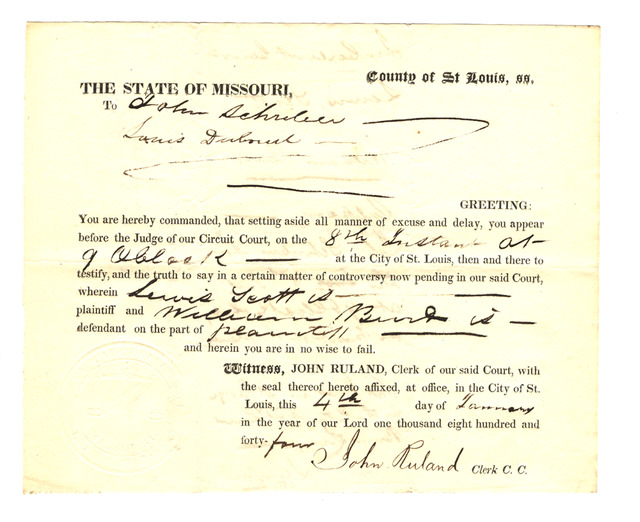 County of St Louis, ss.
THE STATE OF MISSOURI,
To John Schreber
Louis
GREETING:
You are hereby commanded, that setting aside all manner of excuse and delay, you appear
before the Judge of our Circuit Court, on the 8th Instant at
9 Oblook at the City of St. Louis, then and there to
testify, and the truth to say in a certain matter of controversy now pending in our said Court,
wherein Lewis Scott is
plaintiff and William Burd is
defendant on the part of plaintiff
and herein you are in no wise to fail.
Witness, JOHN RULAND, Clerk of our said Court, with
the seal thereof hereto affixed, at office, in the City of St.
Louis, this 4th day of January
in the year of our Lord one thousand eight hundred and
forty-four
John Ruland Clerk C. C.